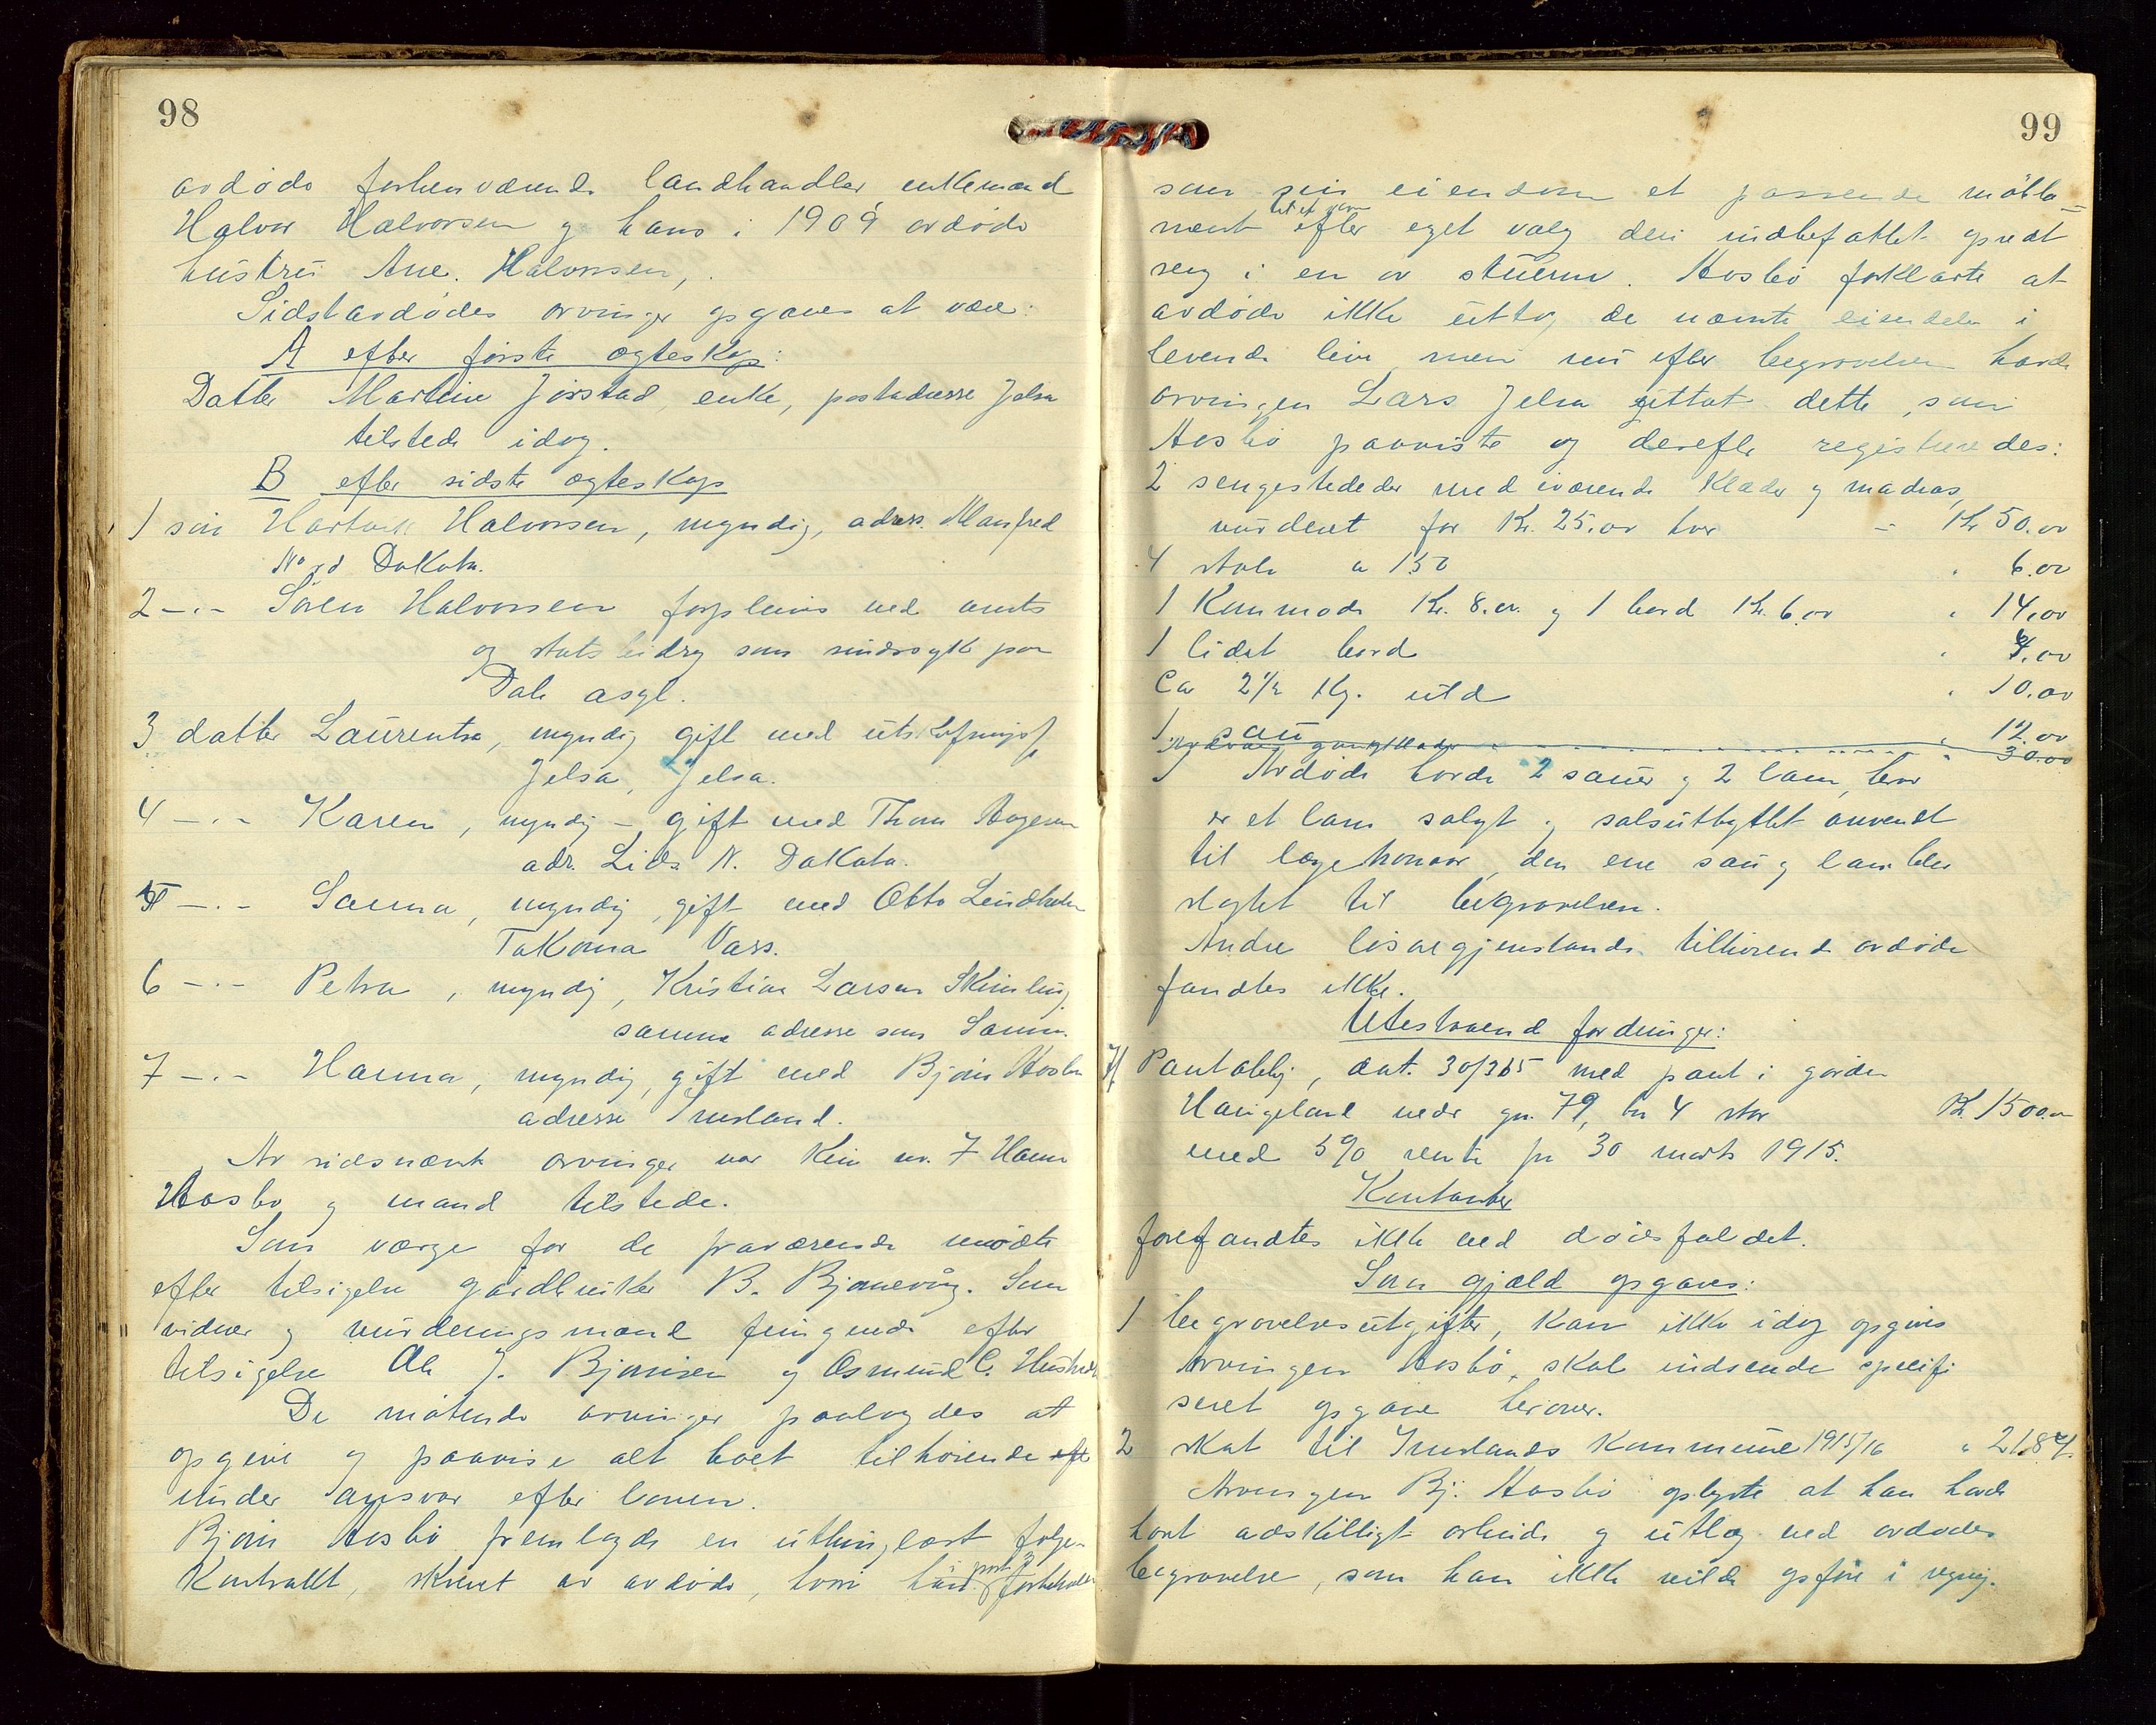 98
avdøde forhenværende landhandler enkemand
Halvor Halvorsen og hans i 1909 avdøde
hustru Ane Halvorsen,
Sidstavdødes arvinger opgaves at være:
A efter første ægteskap:
Datter Martine Jørstad, enke, postadresse Jelsa
tilstede idag.
B efter sidste ægteskap
1 søn Hartvik Halvorsen, myndig, adres. Manfred
Nord Dakota.
2 -"- Søren Halvorsen forpleies ved amts
og statsbidrag som sindssyk paa
Dale asyl.
3 datter Laurentse, myndig gift med utskiftningsf.
Jelsa, Jelsa.
4 -"- Karen, myndig - gift med Thom Aagesen
adr. Lids N. Dakota.
5 -"- Sanna, myndig, gift med Otto Lindholm
Takoma Vass.
6 -"- Petra, myndig, Kristian Larsen
samme adresse som Sanna.
7 -"- Hanna, myndig, gift med Bjørn Aasbø
adresse Imsland.
Av sidsnævnte arvinger var kun nr. 7 Hanna
Aasbø og mand tilstede.
Som værge for de fraværende mødte
efter tilsigelse gårdbruker B. Bjønevåg. Som
vidner og vurderingsmænd fungerede efter
tilsigelse Ole J. Bjørnsen og Osmund C.
De møtende arvinger paalagdes at
opgive og paavise alt boet tilhørende
under ansvar efter loven.
Bjørn Aasbø fremlagde en uthinglæst følge-
kontrakt, skrevet av avdøde, hvori han i post 3 forbeholder
99
som sin eiendom et passende møble-
ment til et værelse efter eget valg deri indbefattet opredt
seng i en av stuerne. Aasbø forklarte at
avdøde ikke uttog de nævnte eiendele i
levende live men nu efter begravelsen havde
arvingen Lars Jelsa uttat dette, som
Aasbø paaviste og derefter registreredes:
2 sengesteder med iværende klæder og madras,
vurderet for Kr. 25.00 hver - Kr 50.00
4 stole a 1.50 " 6.00
1 Kommode Kr. 8.00 og 1 bord Kr. 6.00 " 14.00
1 lidet bord " 4.00
Ca 2½ Kg. uld " 10.00
1 sau " 12.00
gangklæder " 30.00
Avdøde havde 2 sauer og 2 lam, hvor
er et lam solgt og salsutbyttet anvendt
til lægehonorar, den ene sau og lam blev
slagtet til begravelsen.
Andre løsøregjenstande tilhørende avdøde
fandtes ikke.
Utestaaende fordringer:
1/ Pantoblig, dat. 30/3 15 med pant i gården
Haugeland nedr gn. 79, bn 4 stor Kr. 1500.00
med 5% rente fra 30 marts 1915.
Kontanter
forefandtes ikke ved dødsfaldet.
Som gjæld opgaves:
1 begravelsesutgifter, kan ikke idag opgives
Arvingen Aasbø, skal indsende specifi
seret opgave herover.
2 skat til Imslands Kommune 1915/16 " 21.87.
Arvingen Bj. Aasbø oplyste at han havde
havt adskilligt arbeide og utlæg ved avdødes
begravelse, som han ikke vilde opføre i regning.